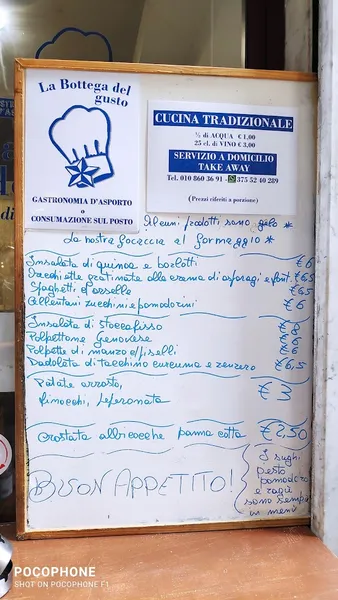 La Bottega del
gusto
GASTRONOMIA D'ASPORTO
o
CONSUMAZIONE SUL POSTO
CUCINA TRADIZIONALE
½ di ACQUA € 1,00
25 cl. di VINO € 3,00
SERVIZIO A DOMICILIO
TAKE AWAY
Tel. 010 860 36 91 - 375 52 40 289
(Prezzi riferiti a porzione)
Alcuni prodotti sono gelo *
La nostra focaccia al formaggio *
Insalata di quinoa e borlotti € 6
gratinate alla crema di asparagi e font. € 6,5
Spaghetti d'arselle € 6,5
Cellentani zucchini e pomodorini € 6
Insalata di stoccafisso € 8
Polpettone Genovese € 6
Polpette di manzo e piselli € 6
Dadolata di tacchino curcuma e zenzero € 6,5
Patate arrosto,
finocchi, peperonata € 3
crostata albicocche panna cotta € 2,50
BUON APPETITO!
I sughi
pesto
pomodoro
e ragù
sono sempre
in menù
POCOPHONE
SHOT ON POCOPHONE F1